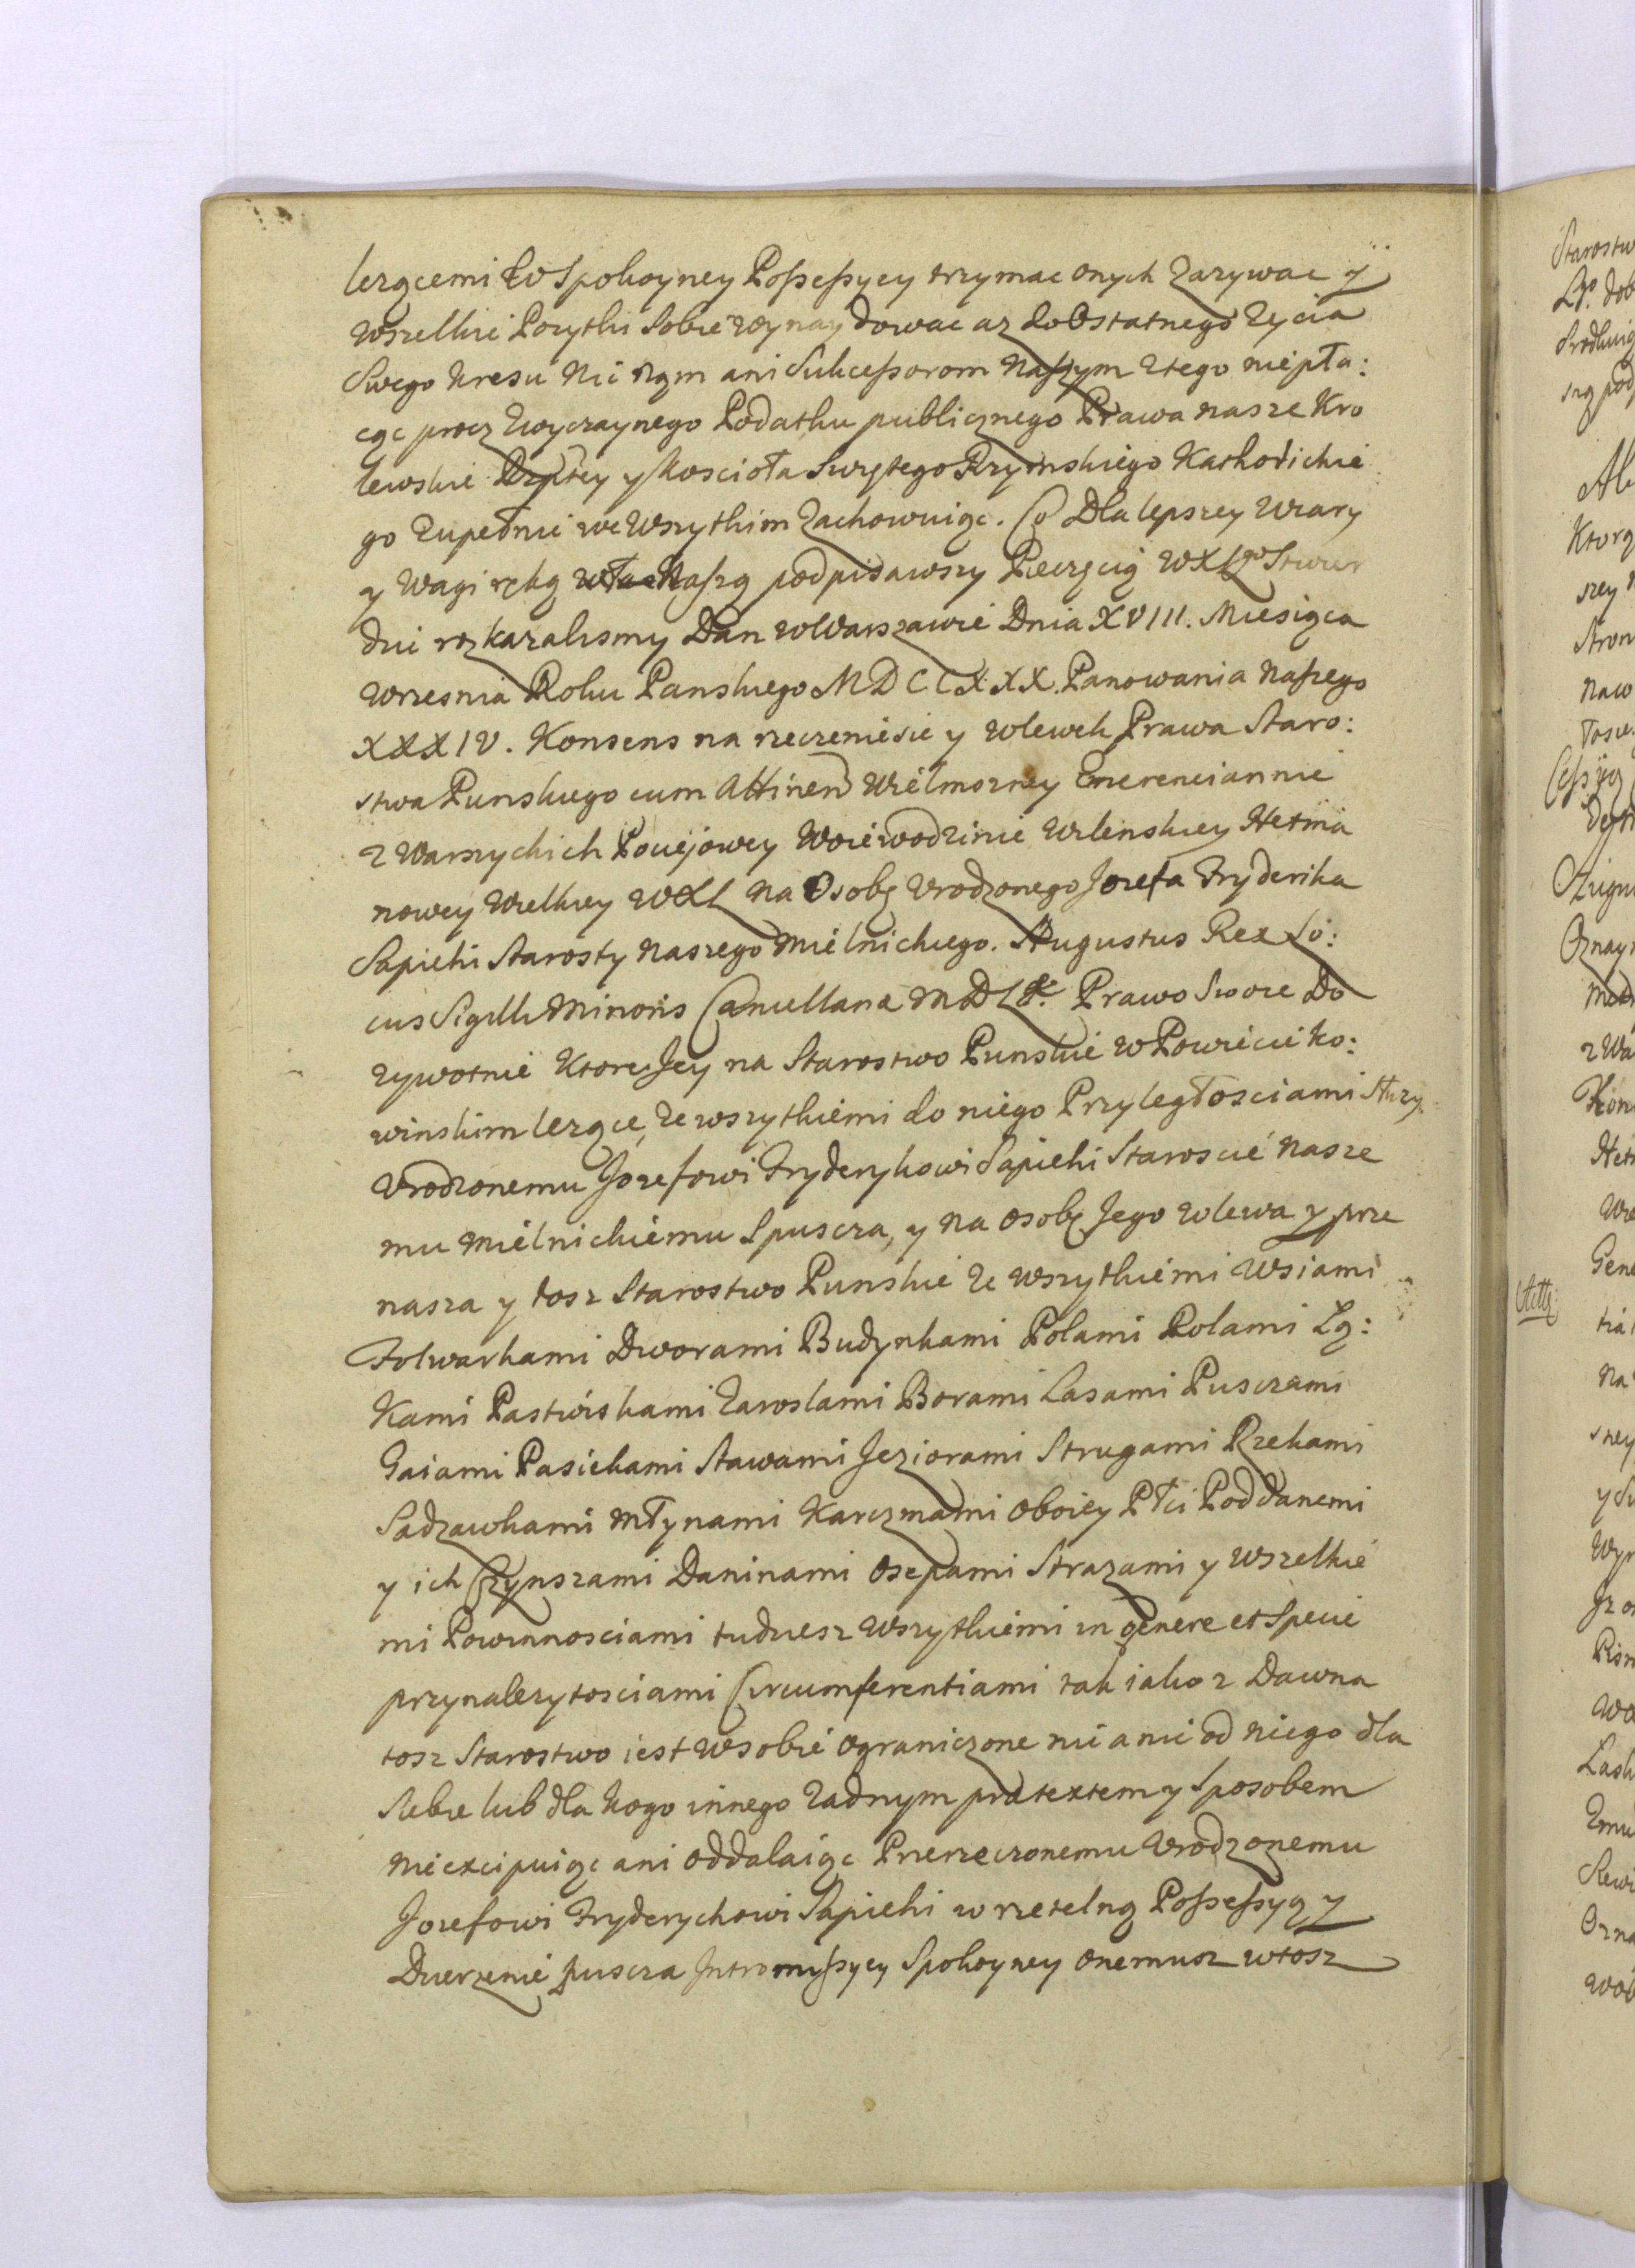 lezącemi w Spokoyney Possessyey trzymac onych Zazywac y
wszelkie Pozytki Sobie wynaydowac az do Ostatnego Zycia
Swego kresu Nic Nąm ani Sukcessorom Naszym Ztego niepła:
cąc procz Zwyczaynego Podatku publicznego Prawa nasze Kro
lewskie Rzptey y koscioła Swiętego Rzymskiego Katholickie
go Zupełnie we Wszytkim Zachowuiąc. Co Dla lepszey Wiary
y Wagi ręką Naszą podpisawszy Pieczęcią WXLgo Stwier
dzic rozkazalismy Dan w Warszawie Dnia XVIII. Miesiąca
Wrzesnia Roku Panskiego MDCCXXX. Panowania Naszego
XXXIV. Konsens na rzeczenie sie y wlewek Prawa Staro:
stwa Punskiego cum Attinen Wielmozney Emerenciannie
z Warszyckich Pociejowey Woiewodzinie Wilenskiey Hetma
nowey Wielkiey WXL na Osobę Urodzonego Jozefa Fryderika
Sapiehi Starosty Naszego Mielnickiego. Augustus Rex Lo:
cus Sigilli Minoris Cancellariæ MDL &c. Prawo Swoie Do
zywotnie Ktore Jey na Starostwo Punskie w Powiecie Ko:
winskim lezące, Ze wszytkiemi do niego Przyległosciami służy
Urodzonemu Jozefowi Fryderykowi Sapiehi Staroscie Nasze
mu Mielnickiemu Spuscza, y na osobę Jego wlewa y prze
nasza y tosz Starostwo Punskie Ze wszytkiemi Wsiami
Folwarkami Dworami Budynkami Polami Rolami Łą:
Kami Pastwiskami Zaroslami Borami Lasami Pusczami
Gaiami Pasiekami Stawami Jeziorami Strugami Rzekami
Sadzawkami Młynami Karczmami oboiey Płci Poddanemi
y ich Czynszami Daninami Osepami Strazami y Wszelkie
mi Powinnosciami tudziesz Wszytkiemi in genere et Specie
przynalezytosciami Circumferentiami tak iako z Dawna
tosz Starostwo iest w sobie ograniczone nic a nic od niego dla
Siebie lub dla kogo innego Zadnym prætextem y Sposobem
nieexcipuiąc ani oddalaiąc Przerzeczonemu Urodzonemu
Jozefowi Fryderychowi Sapiehi w rzetelną Possessyą y
Dzierzenie puscza Intromissyey Spokoyney onemusz wtosz